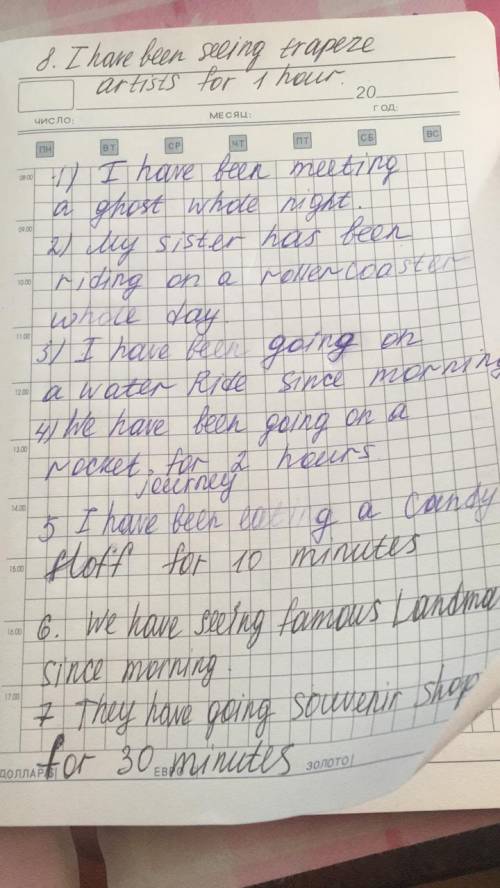 8. I have been seeing trapeze
artists for 1 hour.
20
ЧИСЛО: МЕСЯЦ: ГОД:
ПН ВТ СР ЧТ ПТ СБ ВС
08.00
1) I have been meeting
a ghost whole night.
09.00
2) My sister has been
10.00
riding on a roller coaster
11.00
whole day
3) I have been going on
12.00
a water Ride since morning
4) We have been going on a
13.00
rocket for 2 hours
journey
14.00
5 I have been eating a candy
15.00
floff for 10 minutes
16.00
6. We have seeing famous Landma
since morning.
17.00
7 They have going souvenir shop
for 30 minutes
ДОЛЛАР($) ЕВРО ЗОЛОТО!